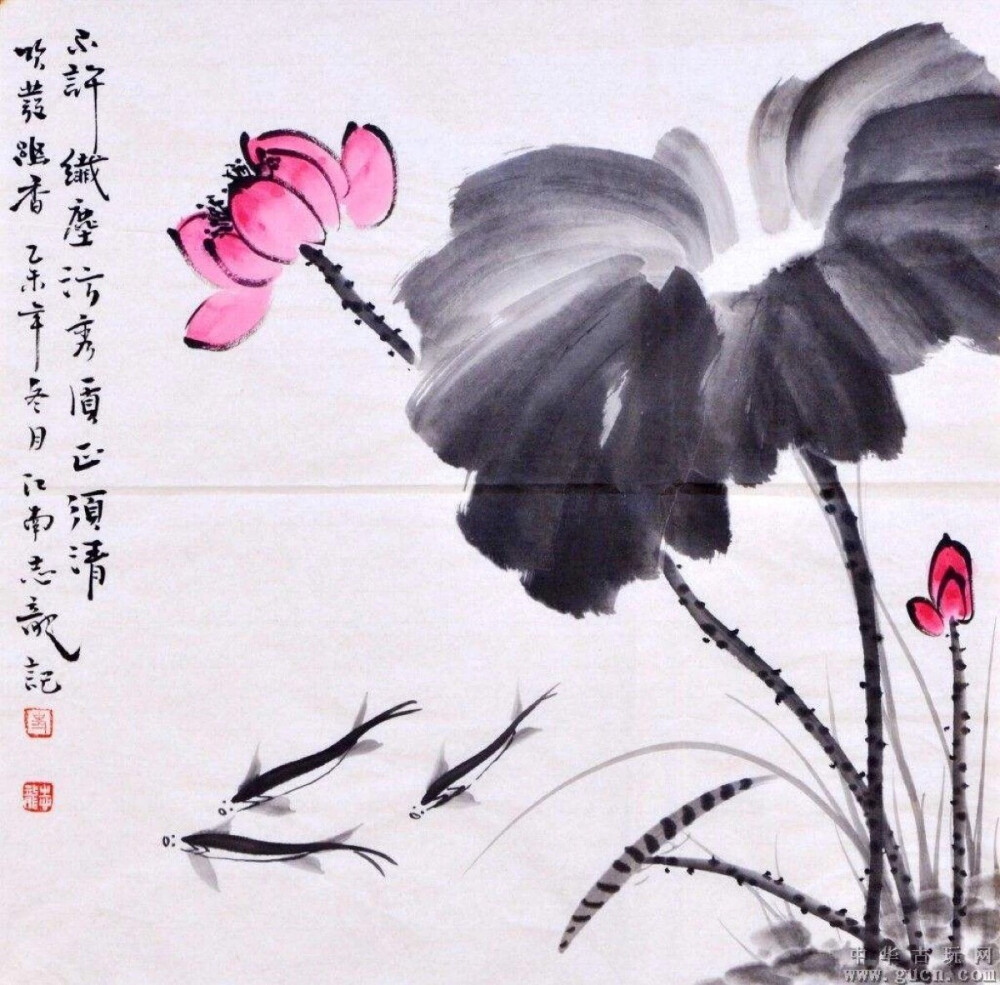 不許纖塵污秀質正須清
吹發幽香 乙未年冬月江南志龍記
志龍
中华古玩网
www.gucn.com